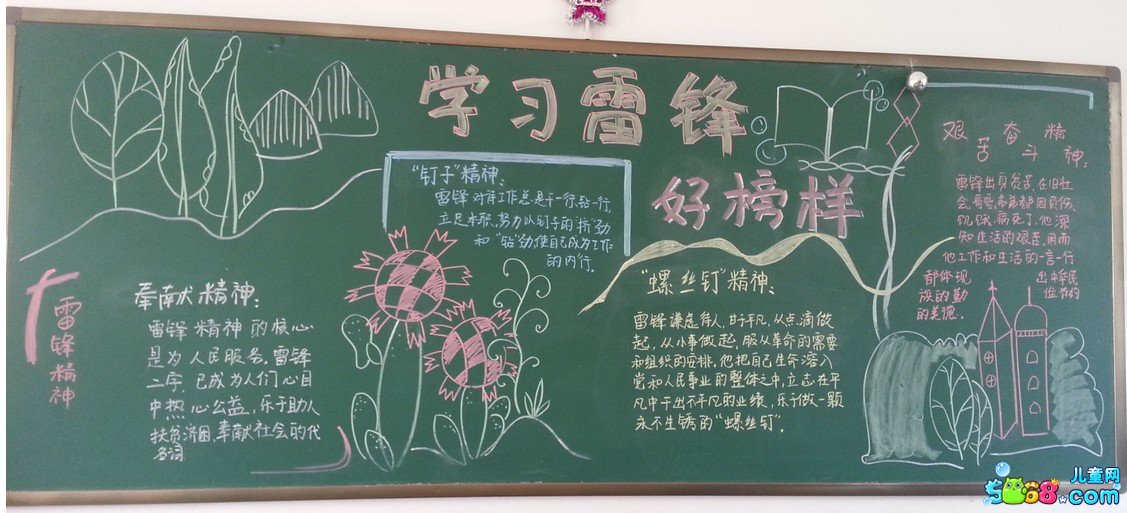 学习雷锋
好榜样
雷锋精神
奉献精神:
雷锋精神的核心
是为人民服务。雷锋
二字,已成为人们心目
中热心公益,乐于助人
扶贫济困,奉献社会的代
名词
"钉子"精神:
雷锋对待工作总是干一行,钻一行,
立足本职,努力以钉子的"挤"劲
和"钻"劲,使自己成为工作
的内行。
"螺丝钉"精神:
雷锋谦虚待人,甘于平凡,从点滴做
起,从小事做起,服从革命的需要
和组织的安排。他把自己生命溶入
党和人民事业的整体之中,立志在平
凡中干出不平凡的业绩,乐于做一颗
永不生锈的"螺丝钉"。
艰苦奋斗精神:
雷锋出身贫苦,在旧社
会,爸爸,弟弟都因负伤,
饥饿,病死了,他深
知生活的艰苦,因而
他工作和生活的一言一行
都体现出中华民
族的勤俭节约
的美德。
儿童网
5068.com